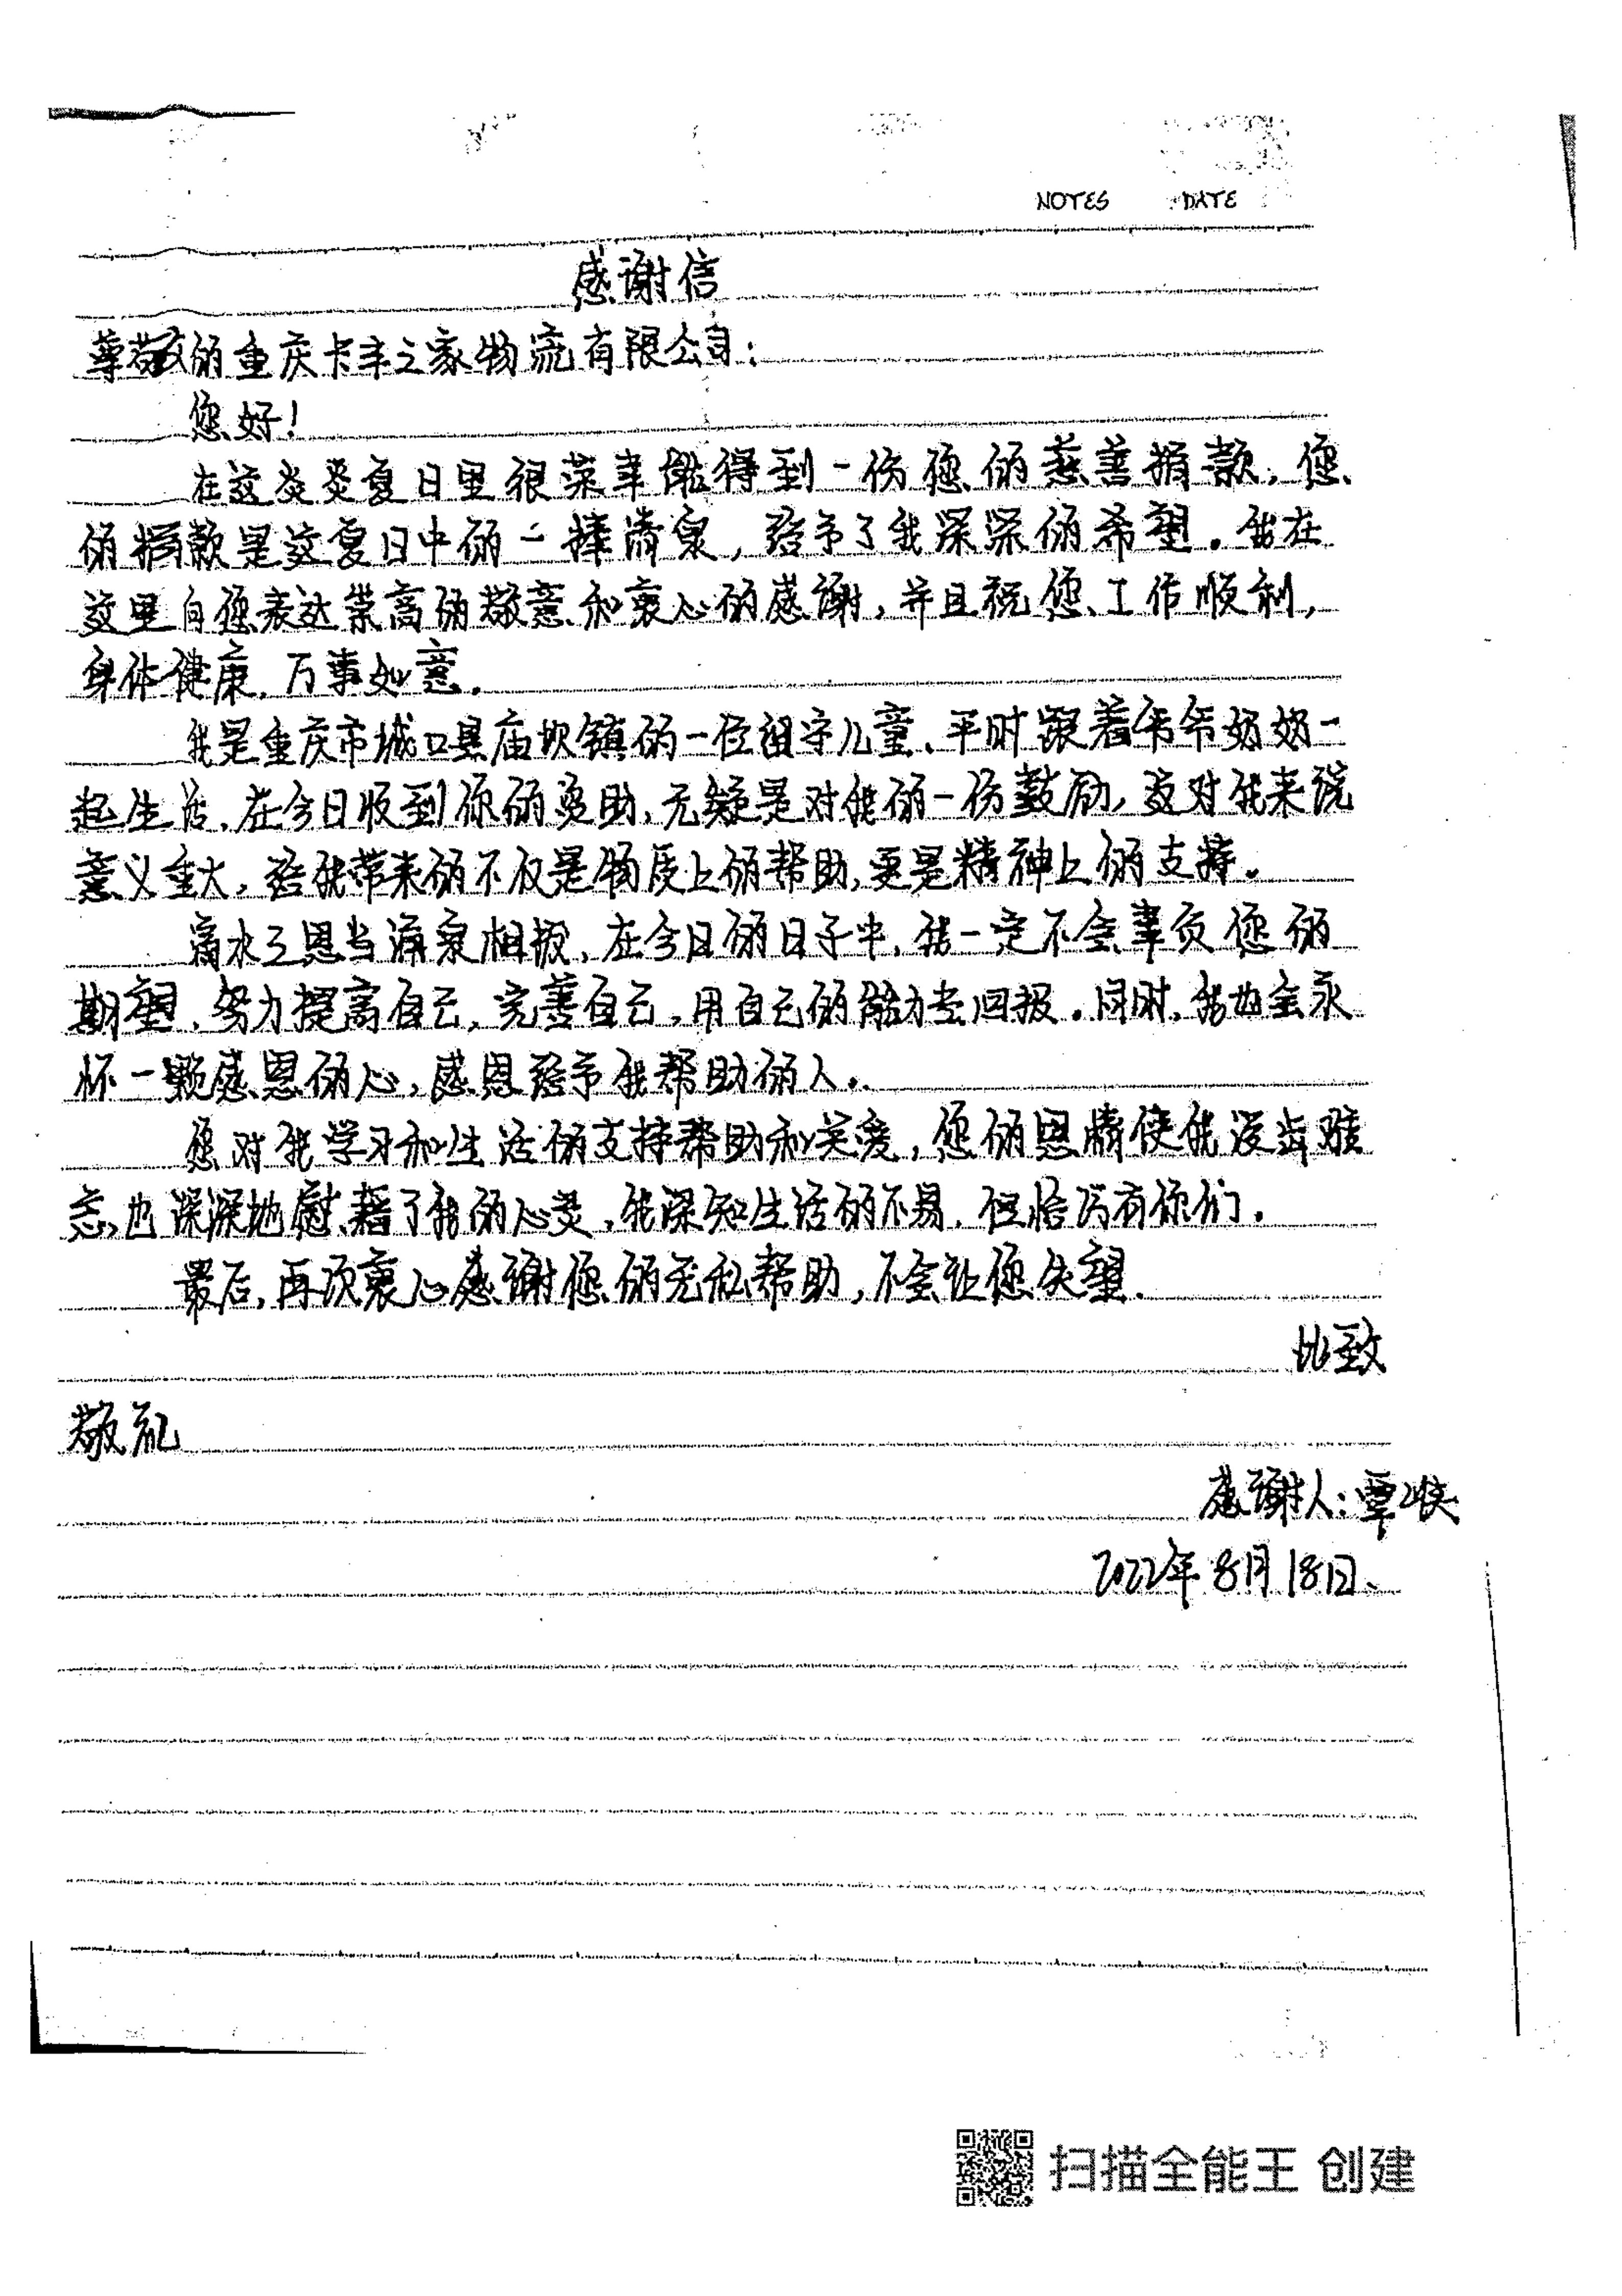 NOTES DATE
感谢信
尊敬的重庆卡车之家物流有限公司：
您好！
在这炎炎夏日里很荣幸能得到一份您的慈善捐款，您
的捐款是这夏日中的一捧清泉，给予了我深深的希望。我在
这里向您表达崇高的敬意和衷心的感谢，并且祝您工作顺利，
身体健康，万事如意。
我是重庆市城口县庙坝镇的一位留守儿童，平时跟着爷爷奶奶一
起生活，在今日收到你的资助，无疑是对我的一份鼓励，这对我来说
意义重大，给我带来的不仅是物质上的帮助，更是精神上的支持。
滴水之恩当涌泉相报，在今日的日子中，我一定不会辜负您的
期望，努力提高自己，完善自己，用自己的能力去回报。同时，我也会永
怀一颗感恩的心，感恩给予我帮助的人。
您对我学习和生活的支持帮助和关爱，您的恩情使我没齿难
忘，也深深地慰藉了我的心灵，我深知生活的不易，但恰巧有你们。
最后，再次衷心感谢您的无私帮助，不会让您失望。
此致
敬礼
感谢人：覃峡
2022年8月18日
扫描全能王 创建